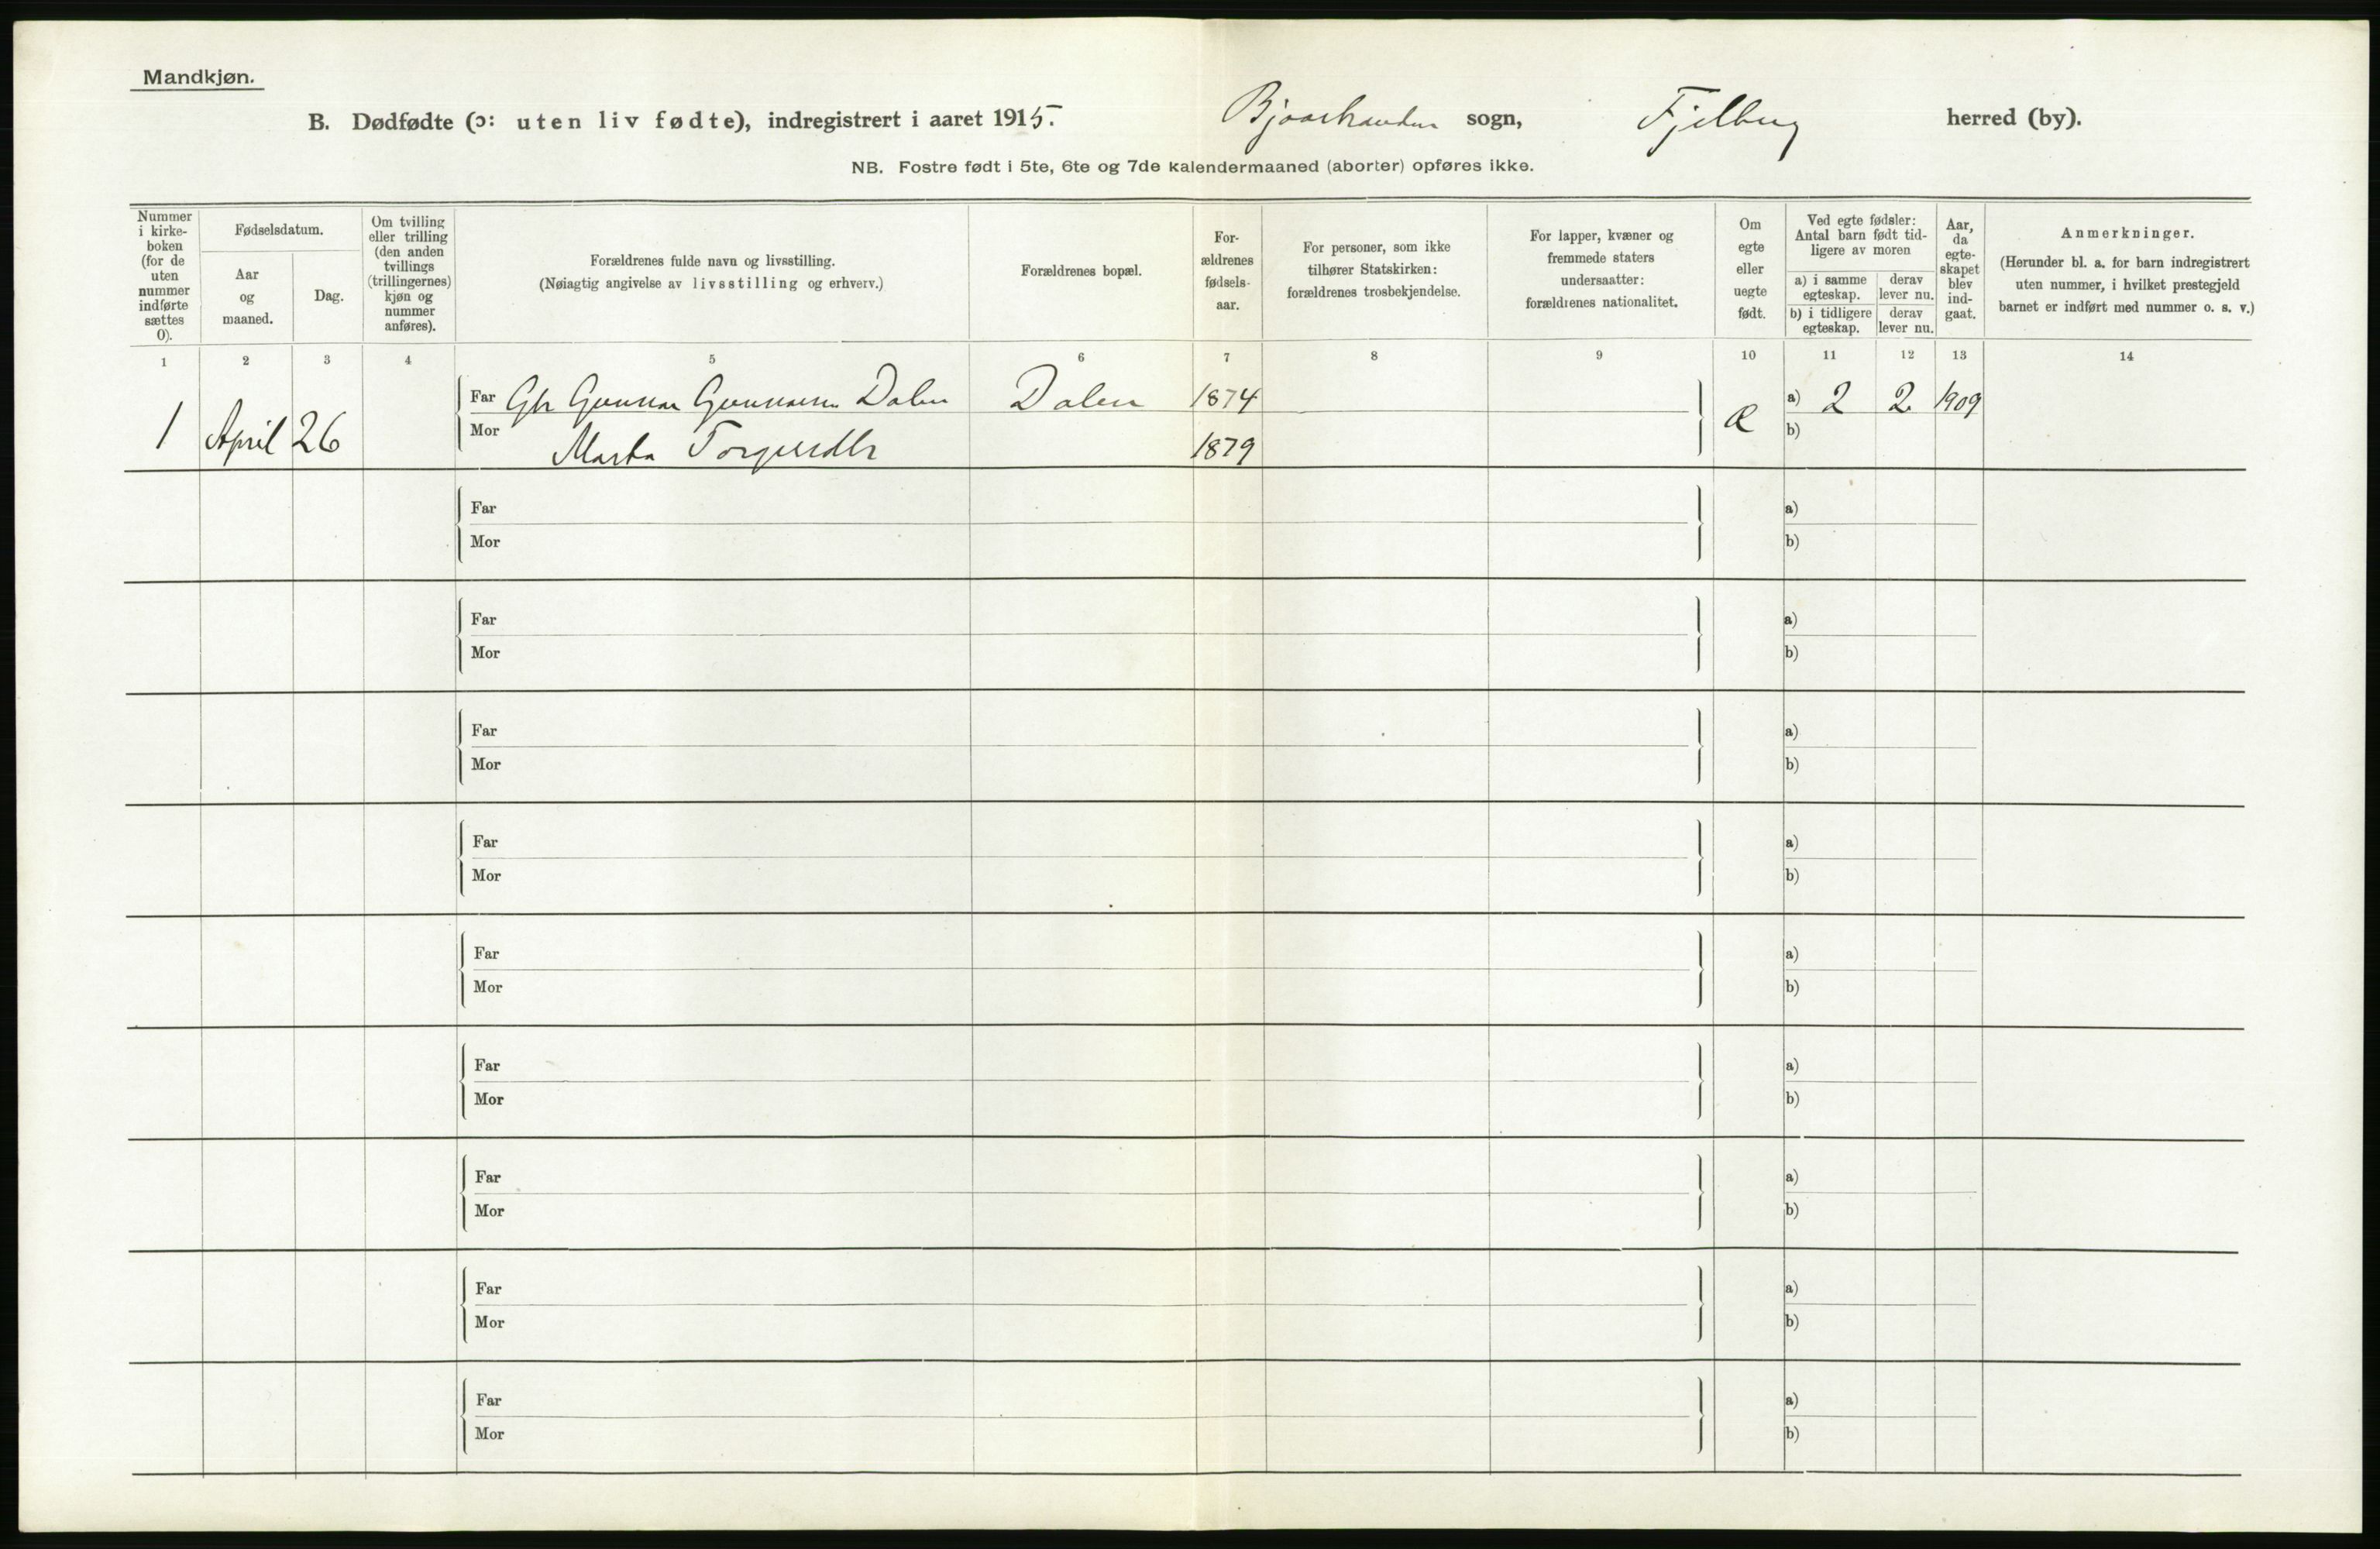 Mandkjøn.
B. Dødfødte (ɔ: uten liv fødte), indregistrert i aaret 1915. Bjoastranden sogn, Fjelberg herred (by).
NB. Fostre født i 5te, 6te og 7de kalendermaaned (aborter) opføres ikke.
Nummer i kirke-boken (for de uten nummer indførte sættes 0).
Fødselsdatum.
Aar og maaned.
Dag.
Om tvilling eller trilling (den anden tvillings (trillingernes) kjøn og nummer anføres).
Forældrenes fulde navn og livsstilling.
(Nøiagtig angivelse av livsstilling og erhverv.)
Forældrenes bopæl.
For-ældrenes fødsels-aar.
For personer, som ikke tilhører Statskirken: forældrenes trosbekjendelse.
For lapper, kvæner og fremmede staters undersaatter: forældrenes nationalitet.
Om egte eller uegte født.
Ved egte fødsler: Antal barn født tid-ligere av moren
a) i samme egteskap. derav lever nu.
b) i tidligere egteskap. derav lever nu.
Aar, da egte-skapet blev ind-gaat.
Anmerkninger.
(Herunder bl. a. for barn indregistrert uten nummer, i hvilket prestegjeld barnet er indført med nummer o. s. v.)
1 2 3 4 5 6 7 8 9 10 11 12 13 14
Far Gbr Gunnar Gunnarsen Dalen Dalen 1874 a) 2 2 1909
1 April 26 Mor Marta Torgersdtr 1879 Æ b)
Far a)
Mor b)
Far a)
Mor b)
Far a)
Mor b)
Far a)
Mor b)
Far a)
Mor b)
Far a)
Mor b)
Far a)
Mor b)
Far a)
Mor b)
Far a)
Mor b)